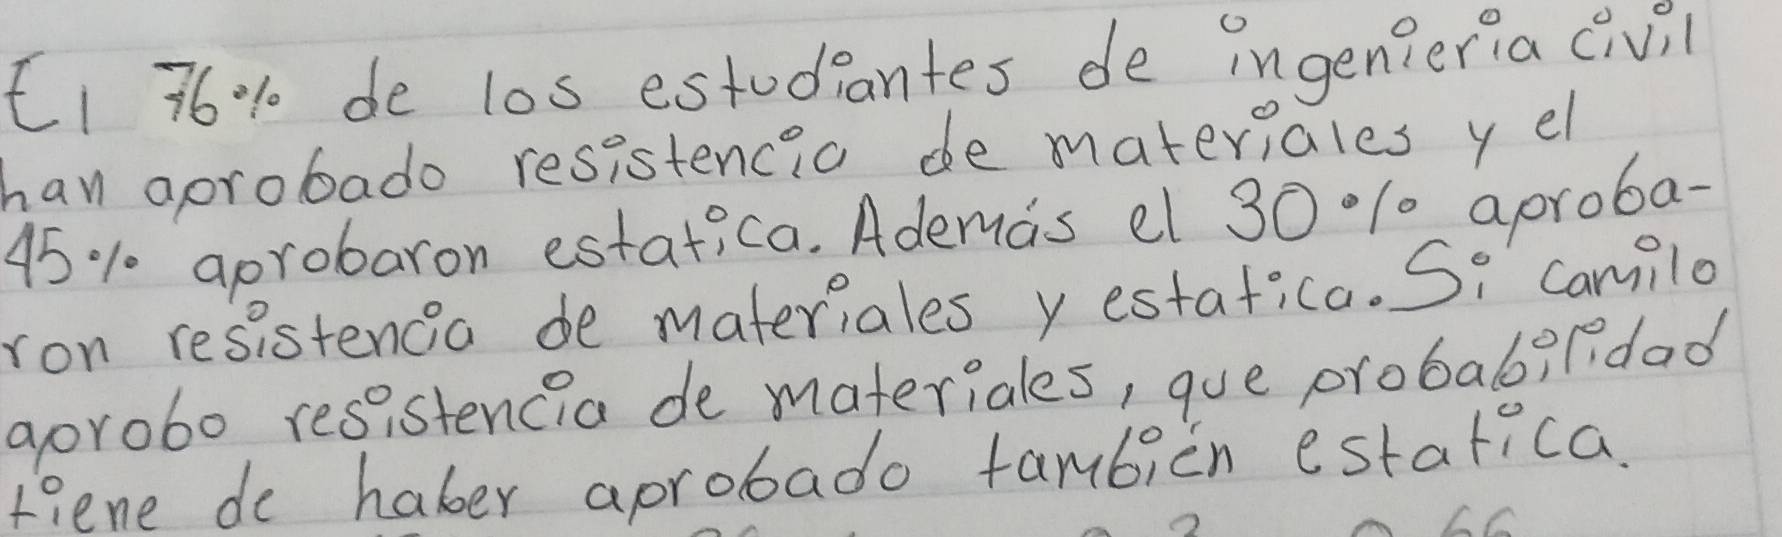 El 76% de los estudiantes de ingenieria civil
han aprobado resistencia de materiales y el
45% aprobaron estatica. Además el 30% aproba-
ron resistencia de materiales y estatica. Si camilo
aprobo resistencia de materiales, que probabilidad
tiene de haber aprobado también estatica.